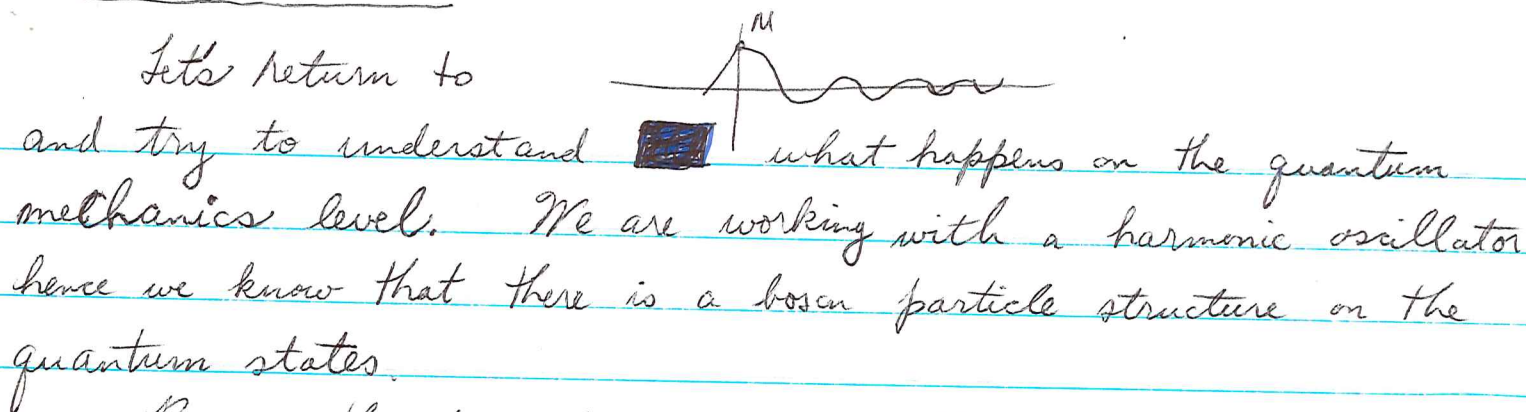 M
Let's return to
and try to understand what happens on the quantum
mechanics level. We are working with a harmonic oscillator
hence we know that there is a boson particle structure on the
quantum states.